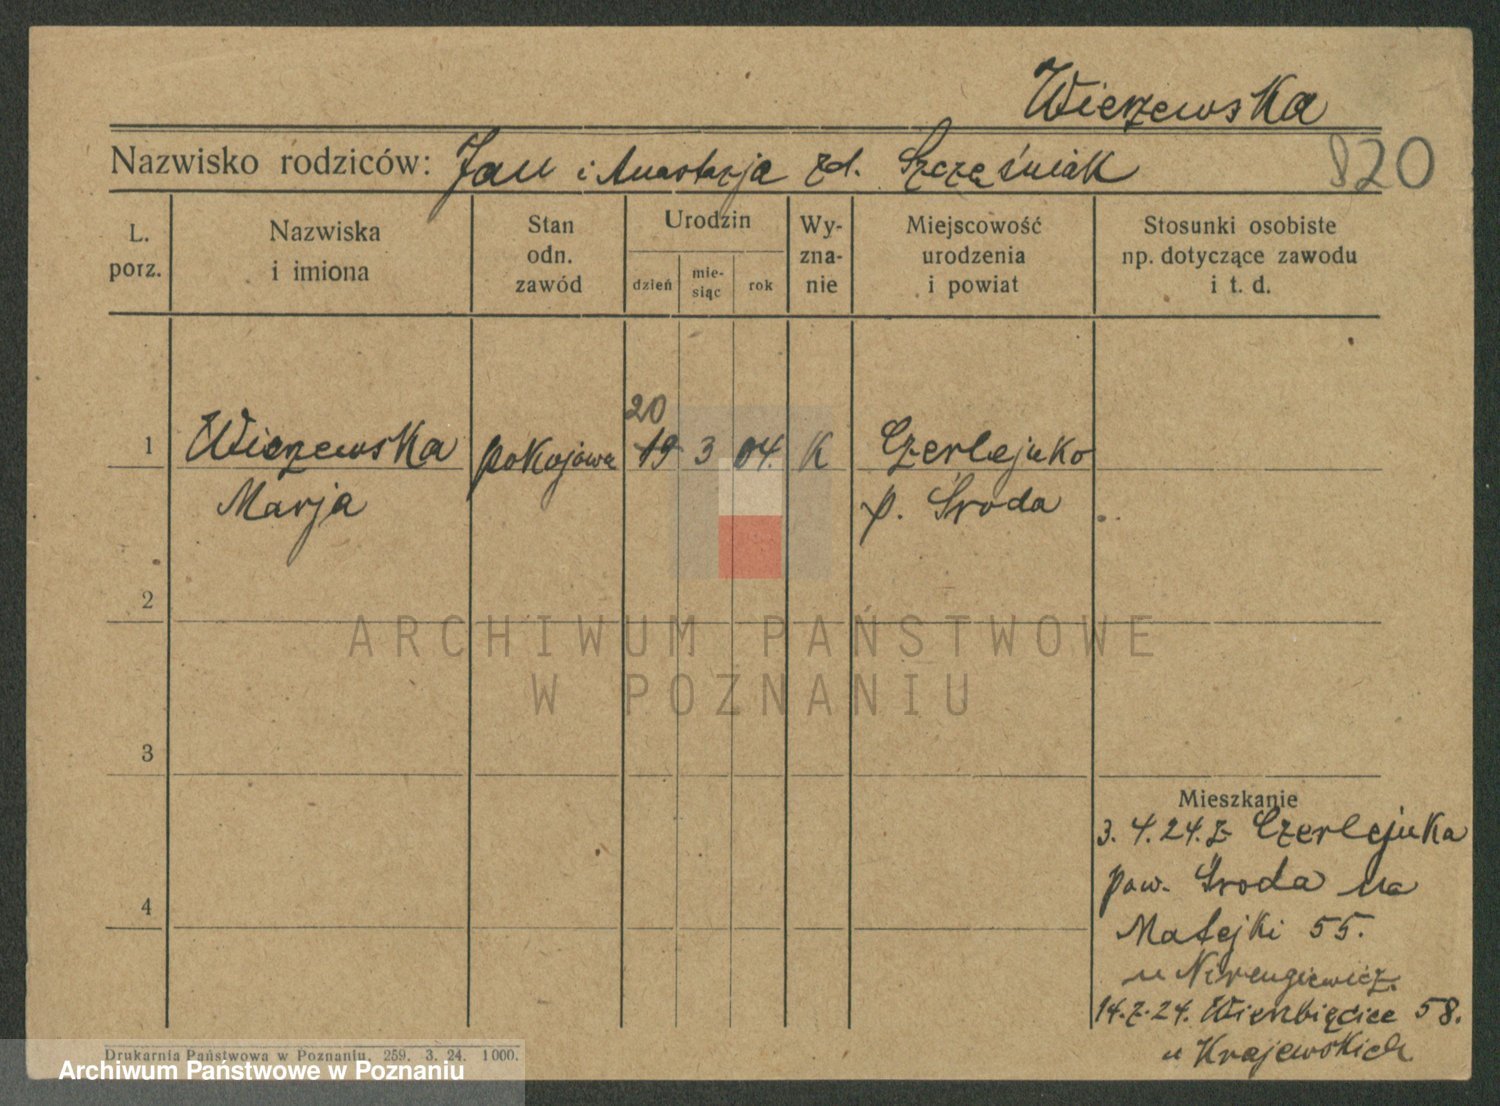 Wierzewska
Nazwisko rodziców: Jan i Anastazja zd. Szcześniak
820
L. porz.
Nazwiska i imiona
Stan odn. zawód
Urodzin
dzień
mie-siąc
rok
Wy-zna-nie
Miejscowość urodzenia i powiat
Stosunki osobiste np. dotyczące zawodu i t. d.
20
1 Wierzewska pokojowa 19 3 04. K Czerlejnko
Marja p. Środa
2
ARCHIWUM PAŃSTWOWE
W POZNANIU
3
Mieszkanie
3. 4. 24. z Czerlejnka
pow. Środa na
4
Matejki 55.
u
14. 7. 24. Wierzbięcice 58.
u Krajewskich
Drukarnia Państwowa w Poznaniu. 259. 3. 24. 1000.
Archiwum Państwowe w Poznaniu